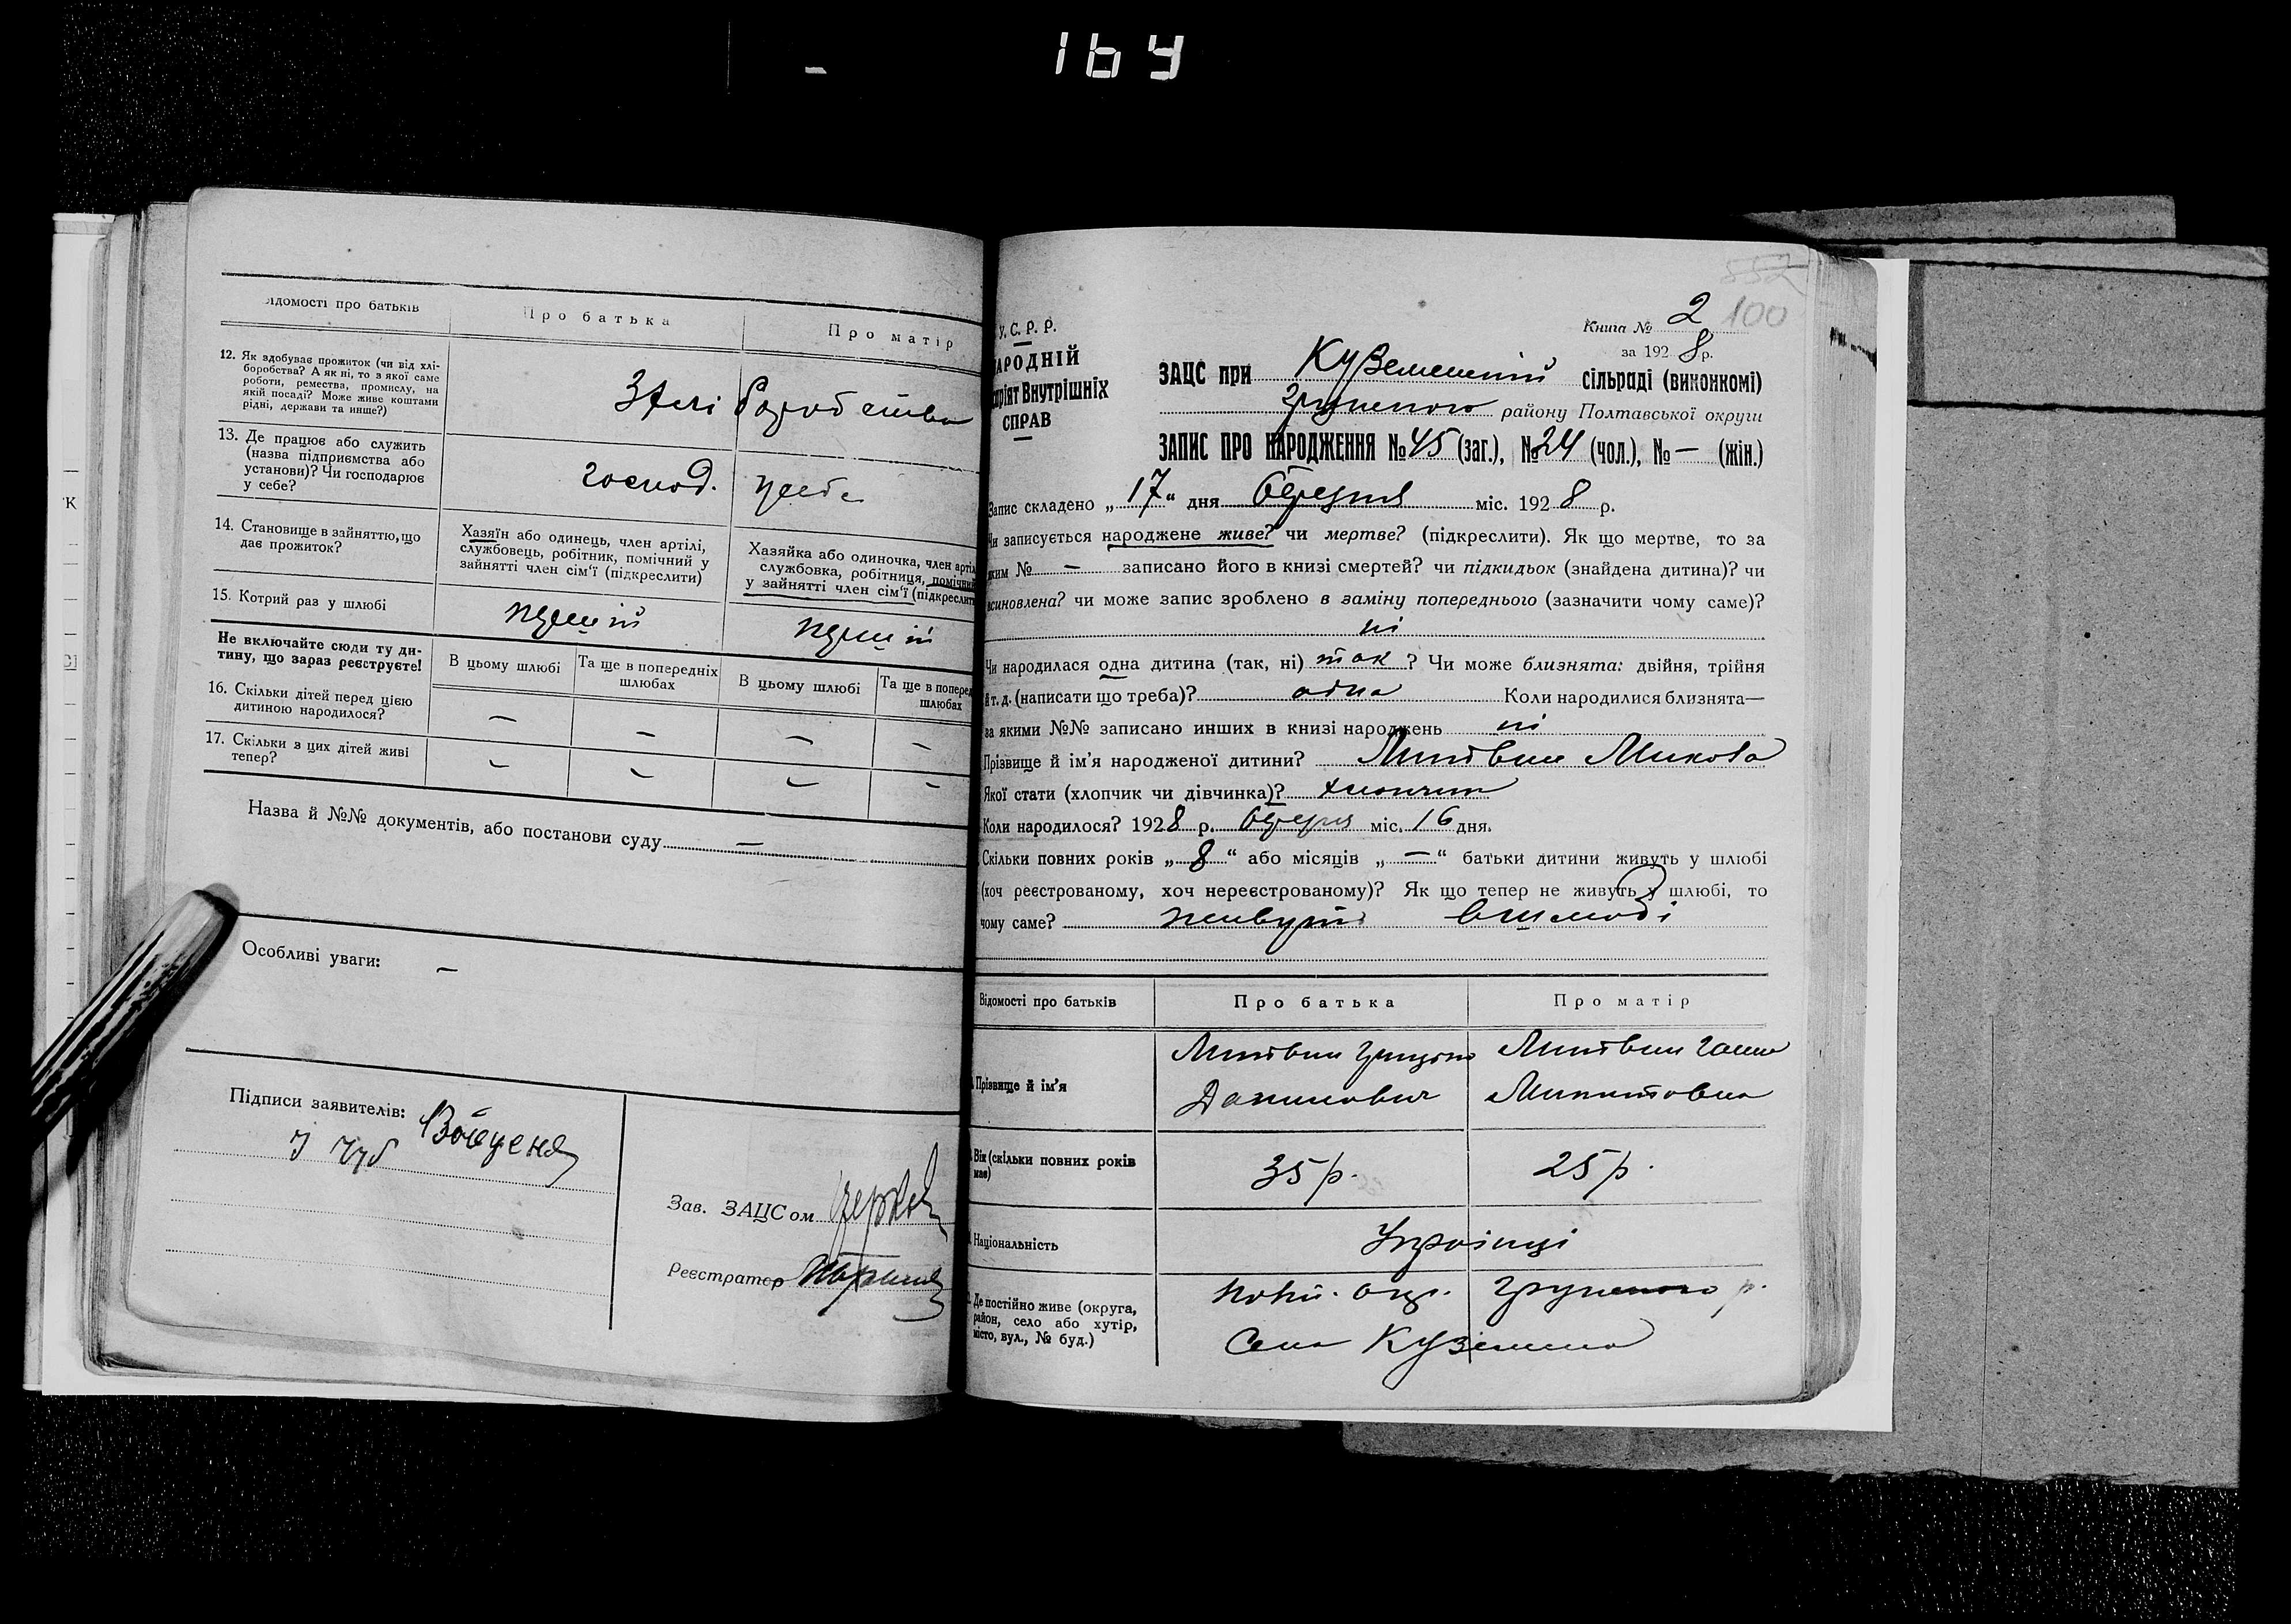 164
Відомості про батьків
Про батька
Про матір
12. Як здобуває прожиток (чи від хлі-
боробства? А як ні, то з якої саме
роботи, ремества, промислу, на
якій посаді? Може живе коштами
рідні, держави та инше?)
З хлі боробства
13. Де працює або служить
(назва підприємства або
установи)? Чи господарює
у себе?
господ. у себе
14. Становище в зайняттю, що
дає прожиток?
Хазяїн або одинець, член артілі,
службовець, робітник, помічний у
зайнятті член сім'ї (підкреслити)
Хазяйка або одиночка, член артілі
службовка, робітниця, помічний
у зайнятті член сім'ї (підкреслити
15. Котрий раз у шлюбі
перший
перший
Не включайте сюди ту ди-
тину, що зараз реєструєте!
В цьому шлюбі
Та ще в попередніх
шлюбах
В цьому шлюбі
Та ще в поперед
шлюбах
16. Скільки дітей перед цією
дитиною народилося?
— — — —
17. Скільки з цих дітей живі
тепер?
— — — —
Назва й №№ документів, або постанови суду —
Особливі уваги: —
Підписи заявителів:
Чуб
Зав. ЗАЦСом
Реєстратор
552
100
Книга № 2
за 1928 р.
У.С.Р.Р.
НАРОДНІЙ
Комісаріят Внутрішніх
СПРАВ
ЗАЦС при Куземенській сільраді (виконкомі)
Грунского району Полтавської округи
ЗАПИС ПРО НАРОДЖЕННЯ № 45 (заг.), № 24 (чол.), № — (жін.)
Запис складено „17“ дня березня міс. 1928 р.
Чи записується народжене живе? чи мертве? (підкреслити). Як що мертве, то за
яким № — записано його в книзі смертей? чи підкидьок (знайдена дитина)? чи
всиновлена? чи може запис зроблено в заміну попереднього (зазначити чому саме)?
ні
Чи народилася одна дитина (так, ні) так? Чи може близнята: двійня, трійня
й т. д. (написати що треба)? одна Коли народилися близнята—
за якими №№ записано инших в книзі народжень ні
Прізвище й ім'я народженої дитини? Литвин Микола
Якої стати (хлопчик чи дівчинка)? хлопчик
Коли народилося? 1928 р. березня міс. 16 дня.
Скільки повних років „8“ або місяців „—“ батьки дитини живуть у шлюбі
(хоч реєстрованому, хоч нереєстрованому)? Як що тепер не живуть у шлюбі, то
чому саме? живуть в шлюбі
Відомості про батьків
Про батька
Про матір
Прізвище й ім'я
Литвин Грицько
Данилович
Литвин Ганна
Микитовна
Вік (скільки повних років
має)
35 р.
25 р.
Національність
Українці
Де постійно живе (округа,
район, село або хутір,
місто, вул., № буд.)
Полт. окр. Грунского р.
Село Куземено